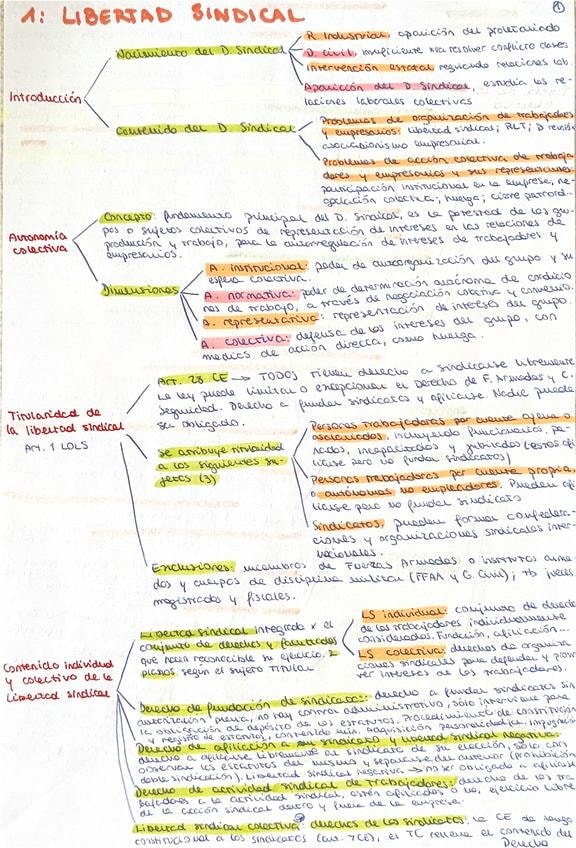 1: LIBERTAD SINDICAL
1
Introducción
Nacimiento del D. Sindical
R. Industrial, aparición del proletariado
D. civil, insuficiente para resolver conflicto clases
Intervención estatal regulando relaciones lab.
Aparición del D. Sindical, estudia las re-
laciones laborales colectivas
Contenido del D. Sindical
Problemas de organización de trabajadores
y empresarios: libertad sindical; RLT; D reunión
asociacionismo empresarial.
Problemas de acción colectiva de trabaja
dores y empresarios y sus representantes:
participación institucional en la empresa, ne-
gociación colectiva, huelga; cierre patronal...
Autonomía
colectiva
Concepto: fundamento principal del D. Sindical, es la potestad de los gru-
pos o sujetos colectivos de representación de intereses en las relaciones de
producción y trabajo, para la autorregulación de intereses de trabajadores y
empresarios.
Dimensiones
A. institucional: poder de autorganización del grupo y su
esfera colectiva.
A. normativa: poder de determinación autónoma de condicio
nes de trabajo, a través de negociación colectiva y convenio.
A. representativa: representación de intereses del grupo.
A. colectiva: defensa de los intereses del grupo, con
medios de acción directa, como huelga.
Titularidad de
la libertad sindical
Art. 1 LOLS
Art. 28 CE → TODOS tienen derecho a sindicarse libremente
La ley puede limitar o excepcionar el Derecho de F. Armadas y C.
Seguridad. Derecho a fundar sindicatos y afiliarse. Nadie puede
ser obligado.
Se atribuye titularidad
a los siguientes su-
jetos (3)
Personas trabajadoras por cuenta ajena o
asalariados, incluyendo funcionarios, pa-
rados, incapacitados y jubilados (estos afi
liarse pero no fundar sindicatos)
Personas trabajadoras por cuenta propia,
o autónomos no empleadores. Pueden afi
liarse pero no fundar sindicato
Sindicatos, pueden formar confedera-
ciones y organizaciones sindicales inter-
nacionales.
Exclusiones: miembros de Fuerzas Armadas o institutos arma-
dos y cuerpos de disciplina militar (FFAA y G. Civil); tb jueces
magistrados y fiscales.
Contenido individual
y colectivo de la
libertad sindical
Libertad sindical integrada x el
conjunto de derechos y facultades
que hacen reconocible su ejercicio. 2
planos, según el sujeto titular
LS individual: conjunto de derech
de los trabajadores individualmente
considerados. Fundación, afiliación...
LS colectiva: derechos de organiza
ciones sindicales para defender y promo
ver intereses de los trabajadores.
Derecho de fundación de sindicatos: derecho a fundar sindicatos sin
autorización previa, no hay control administrativo, sólo interviene para
la obligación de depósito de los estatutos. Procedimiento de constitución
y registro de estatutos, contenido mín. Adquisición personalidad, impugnación
Derecho de afiliación a su sindicato y libertad sindical negativa:
derecho a afiliarse libremente al sindicato de su elección, sólo con
observar los estatutos del mismo y separarse del anterior (prohibición
doble sindicación). Libertad sindical negativa → no ser obligado a afiliarse
Derecho de actividad sindical de trabajadores: derecho de los tra
bajadores a la actividad sindical, estén afiliados o no, ejercicio libre
de la acción sindical dentro y fuera de la empresa.
Libertad sindical colectiva: derechos de los sindicatos: la CE da rango
constitucional a los sindicatos (art. 7CE), el TC rellena el contenido del
Derecho